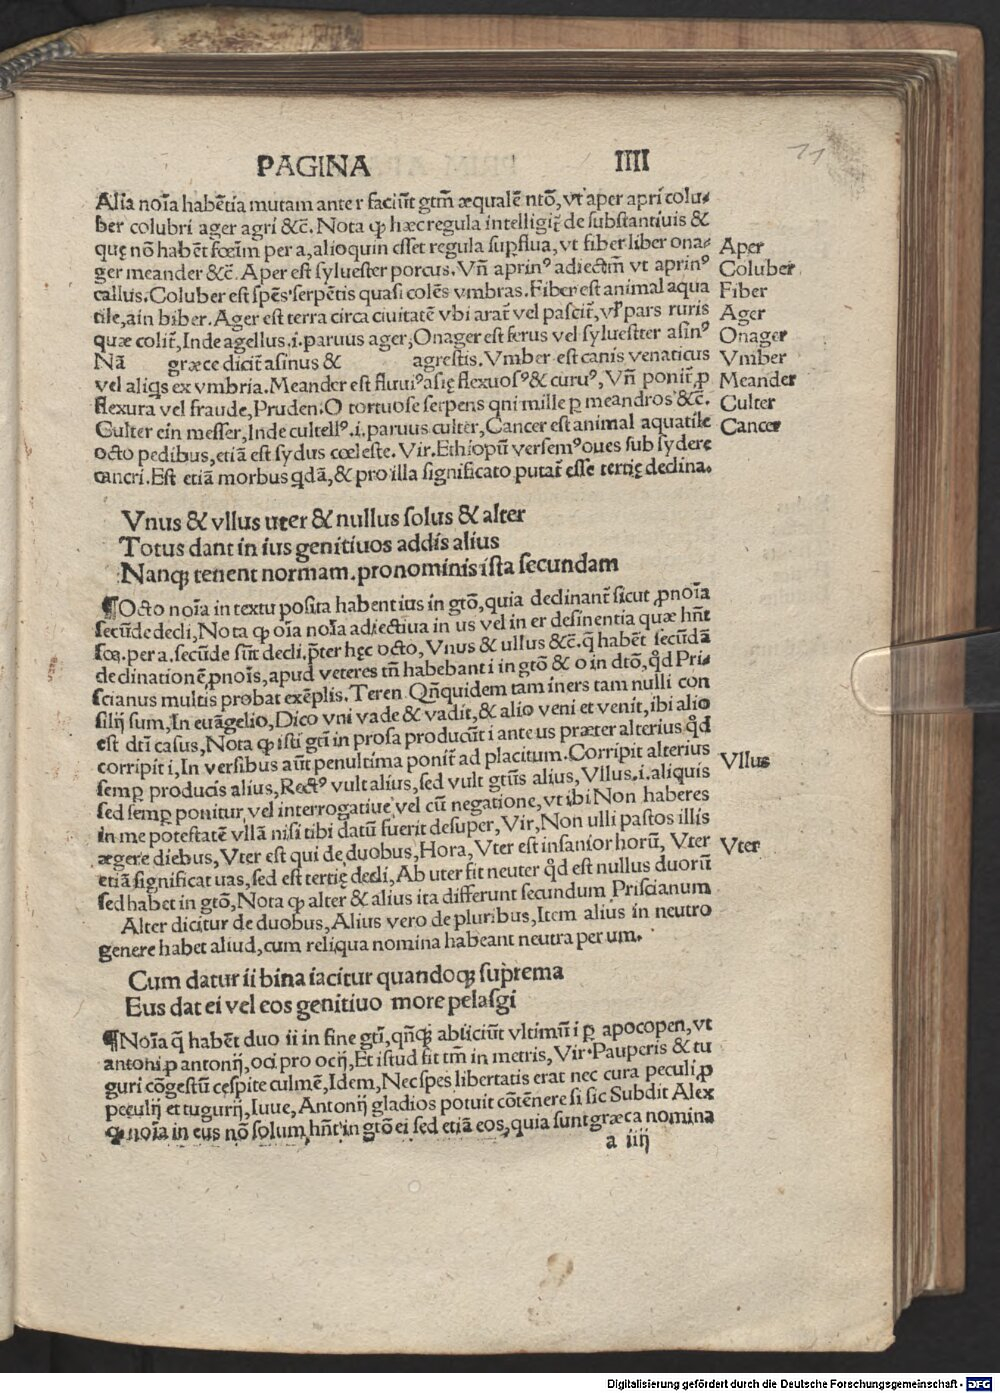 PAGINA IIII
11
Alia noīa habētia mutam ante r faciūt gtm̄ æqualē ntō, vt aper apri colu-
ber colubri ager agri &c̄. Nota ꝙ hæc regula intelligit̄ de substantiuis &
quę nō habēt fœīm per a, alioquin esset regula suꝑflua, vt fiber liber ona-
ger meander &c̄. Aper est syluester porcus. Vn̄ aprinꝰ adiectm̄ vt aprinꝰ
callus. Coluber est spēs serpētis quasi colēs vmbras. Fiber est animal aqua
tile, ain biber. Ager est terra circa ciuitatē vbi arat̄ vel pascit̄, vl̄ pars ruris
quæ colit̄, Inde agellus .i. paruus ager, Onager est ferus vel syluestter asinꝰ
Nā græce dicit̄ asinus & agrestis. Vmber est canis venaticus
vel aliqs ex vmbria. Meander est fluuiꝰ asię flexuosꝰ & curuꝰ, Vn̄ ponit̄ ꝓ
flexura vel fraude, Pruden. O tortuose serpens qui mille ꝑ meandros &c̄.
Culter ein messer, Inde cultellꝰ .i. paruus culter, Cancer est animal aquatile
octo pedibus, etiā est sydus cœleste. Vir. Ethiopū versemꝰ oues sub sydere
cancri. Est etiā morbus qdā, & pro illa significato putat̄ esse tertię declina.
Aper
Coluber
Fiber
Ager
Onager
Vmber
Meander
Culter
Cancer
Vnus & vllus uter & nullus solus & alter
Totus dant in ius genitiuos addis alius
Nanqꝫ tenent normam. pronominis ista secundam
¶Octo noīa in textu posita habent ius in gtō, quia declinant̄ sicut ꝓnoīa
secūde decli, Nota ꝙ oīa noīa adiectiua in us vel in er desinentia quæ hn̄t
fœ. per a. secūde sūt decli. p̄ter hęc octo, Vnus & ullus &c̄. q̄ habēt secūdā
declinationē ꝓnoīs, apud veteres tn̄ habebant i in gtō & o in dtō, qd̄ Pri-
scianus multis probat exēplis. Teren. Qn̄quidem tam iners tam nulli con
silij sum, In euāgelio, Dico vni vade & vadit, & alio veni et venit, ibi alio
est dti casus, Nota ꝙ isti gti in prosa producūt i ante us præter alterius qd̄
corripit i, In versibus aūt penultima ponit̄ ad placitum. Corripit alterius
semꝑ producis alius, Rectꝰ vult alius, sed vult gtūs alius, Vllus .i. aliquis
sed semꝑ ponitur vel interrogatiue vel cū negatione, vt ibi Non haberes
in me potestatē vllā nisi tibi datū fuerit desuper, Vir, Non ulli pastos illis
ægere diebus, Vter est qui de duobus, Hora, Vter est insanior horū, Vter
etiā significat uas, sed est tertię decli, Ab uter fit neuter qd̄ est nullus duorū
sed habet in gtō, Nota ꝙ alter & alius ita differunt secundum Priscianum
Alter dicitur de duobus, Alius vero de pluribus, Item alius in neutro
genere habet aliud, cum reliqua nomina habeant neutra per um.
Vllus
Vter
Cum datur ii bina iacitur quandoqꝫ suprema
Eus dat ei vel eos genitiuo more pelasgi
¶Noīa q̄ habēt duo ii in fine gti, qn̄qꝫ abiiciūt vltimū i ꝑ apocopen, vt
antoni ꝓ antonij, oci pro ocij, Et istud fit tm̄ in metris, Vir. Pauperis & tu
guri cōgestū cespite culmē, Idem, Nec spes libertatis erat nec cura peculi, ꝓ
peculij et tugurij, Iuue, Antonij gladios potuit cōtēnere si sic Subdit Alex
ꝙ noīa in eus nō solum hn̄t in gtō ei sed etiā eos, quia sunt græca nomina
a iiij
Digitalisierung gefördert durch die Deutsche Forschungsgemeinschaft - DFG